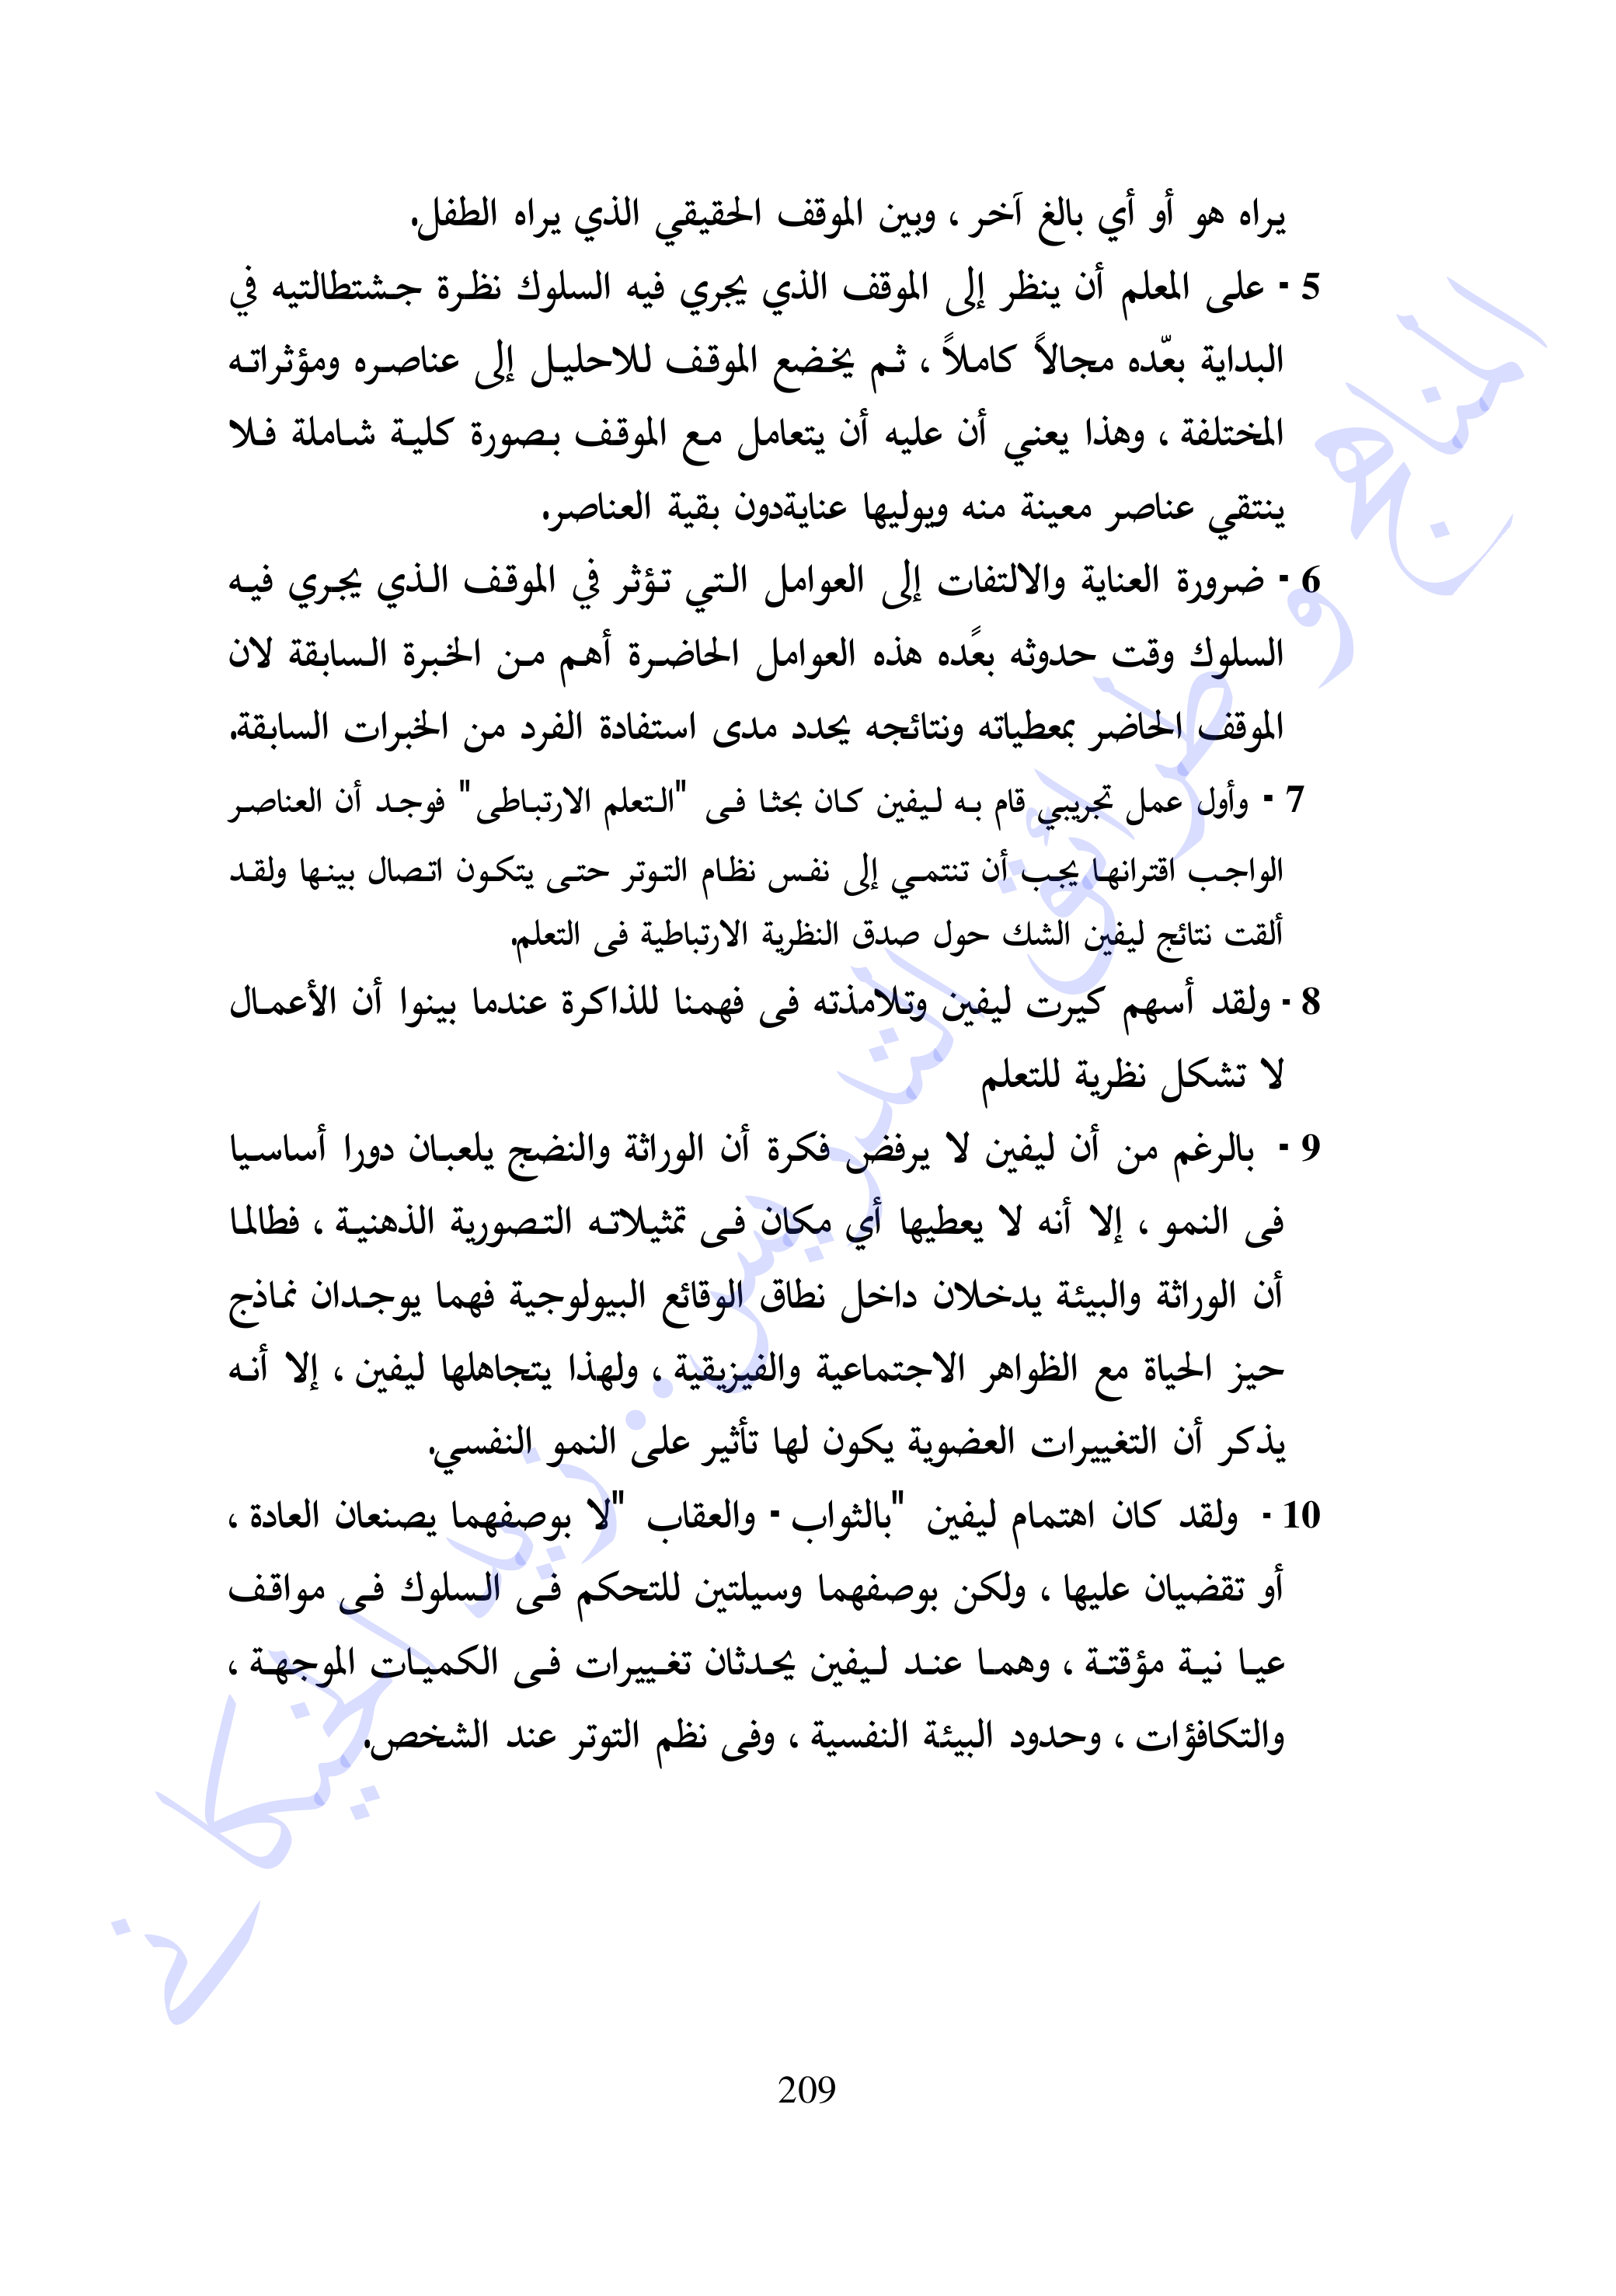 يراه هو أو أي بالغ آخر ، وبين الموقف الحقيقي الذي يراه الطفل.
5 - على المعلم أن ينظر إلى الموقف الذي يجري فيه السلوك نظرة جشتطالتيه في
البداية بعّده مجالاً كاملاً ، ثم يخضع الموقف للاحليل إلى عناصره ومؤثراته
المختلفة ، وهذا يعني أن عليه أن يتعامل مع الموقف بصورة كلية شاملة فلا
ينتقي عناصر معينة منه ويوليها عنايةدون بقية العناصر.
6 - ضرورة العناية والالتفات إلى العوامل التي تؤثر في الموقف الذي يجري فيه
السلوك وقت حدوثه بعًده هذه العوامل الحاضرة أهم من الخبرة السابقة لان
الموقف الحاضر بمعطياته ونتائجه يحدد مدى استفادة الفرد من الخبرات السابقة.
7 - وأول عمل تجريبي قام به ليفين كان بحثا فى "التعلم الارتباطى" فوجد أن العناصر
الواجب اقترانها يجب أن تنتمي إلى نفس نظام التوتر حتى يتكون اتصال بينها ولقد
ألقت نتائج ليفين الشك حول صدق النظرية الارتباطية فى التعلم.
8 - ولقد أسهم كيرت ليفين وتلامذته فى فهمنا للذاكرة عندما بينوا أن الأعمال
لا تشكل نظرية للتعلم
9 - بالرغم من أن ليفين لا يرفض فكرة أن الوراثة والنضج يلعبان دورا أساسيا
فى النمو ، إلا أنه لا يعطيها أي مكان فى تمثيلاته التصورية الذهنية ، فطالما
أن الوراثة والبيئة يدخلان داخل نطاق الوقائع البيولوجية فهما يوجدان نماذج
حيز الحياة مع الظواهر الاجتماعية والفيزيقية ، ولهذا يتجاهلها ليفين ، إلا أنه
يذكر أن التغييرات العضوية يكون لها تأثير على النمو النفسي.
10 - ولقد كان اهتمام ليفين "بالثواب - والعقاب "لا بوصفهما يصنعان العادة ،
أو تقضيان عليها ، ولكن بوصفهما وسيلتين للتحكم فى السلوك فى مواقف
عيا نية مؤقتة ، وهما عند ليفين يحدثان تغييرات فى الكميات الموجهة ،
والتكافؤات ، وحدود البيئة النفسية ، وفى نظم التوتر عند الشخص.
المناهج و طرائق التدريس: زيد الخيكاني
209